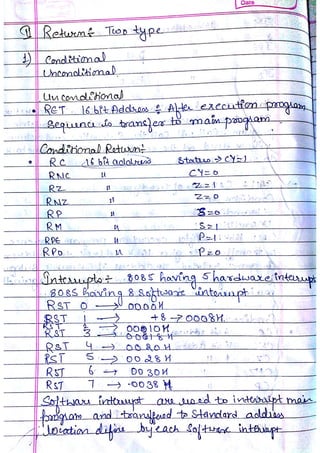 Date
Return: Two type
1) Conditional
Unconditional
Unconditional
• RET 16 bit Address : After execution program
Sequence is transfer to main program
Conditional Return:
• RC 16 bit address Status → CY=1
RNC " CY=0
RZ " Z=1
RNZ " Z=0
RP " S=0
RM " S=1
RPE " P=1
RPO " P=0
Interrupts: 8085 having 5 hardware interrupt
8085 having 8 Software interrupt
RST 0 → 0000H
RST 1 → +8 → 0008H
RST 2 → 0010H
RST 3 → 0018H
RST 4 → 0020H
RST 5 → 0028H
RST 6 → 0030H
RST 7 → 0038H
Software interrupt are used to interrupt main
program and transferred to Standard address
location define by each Software interrupt